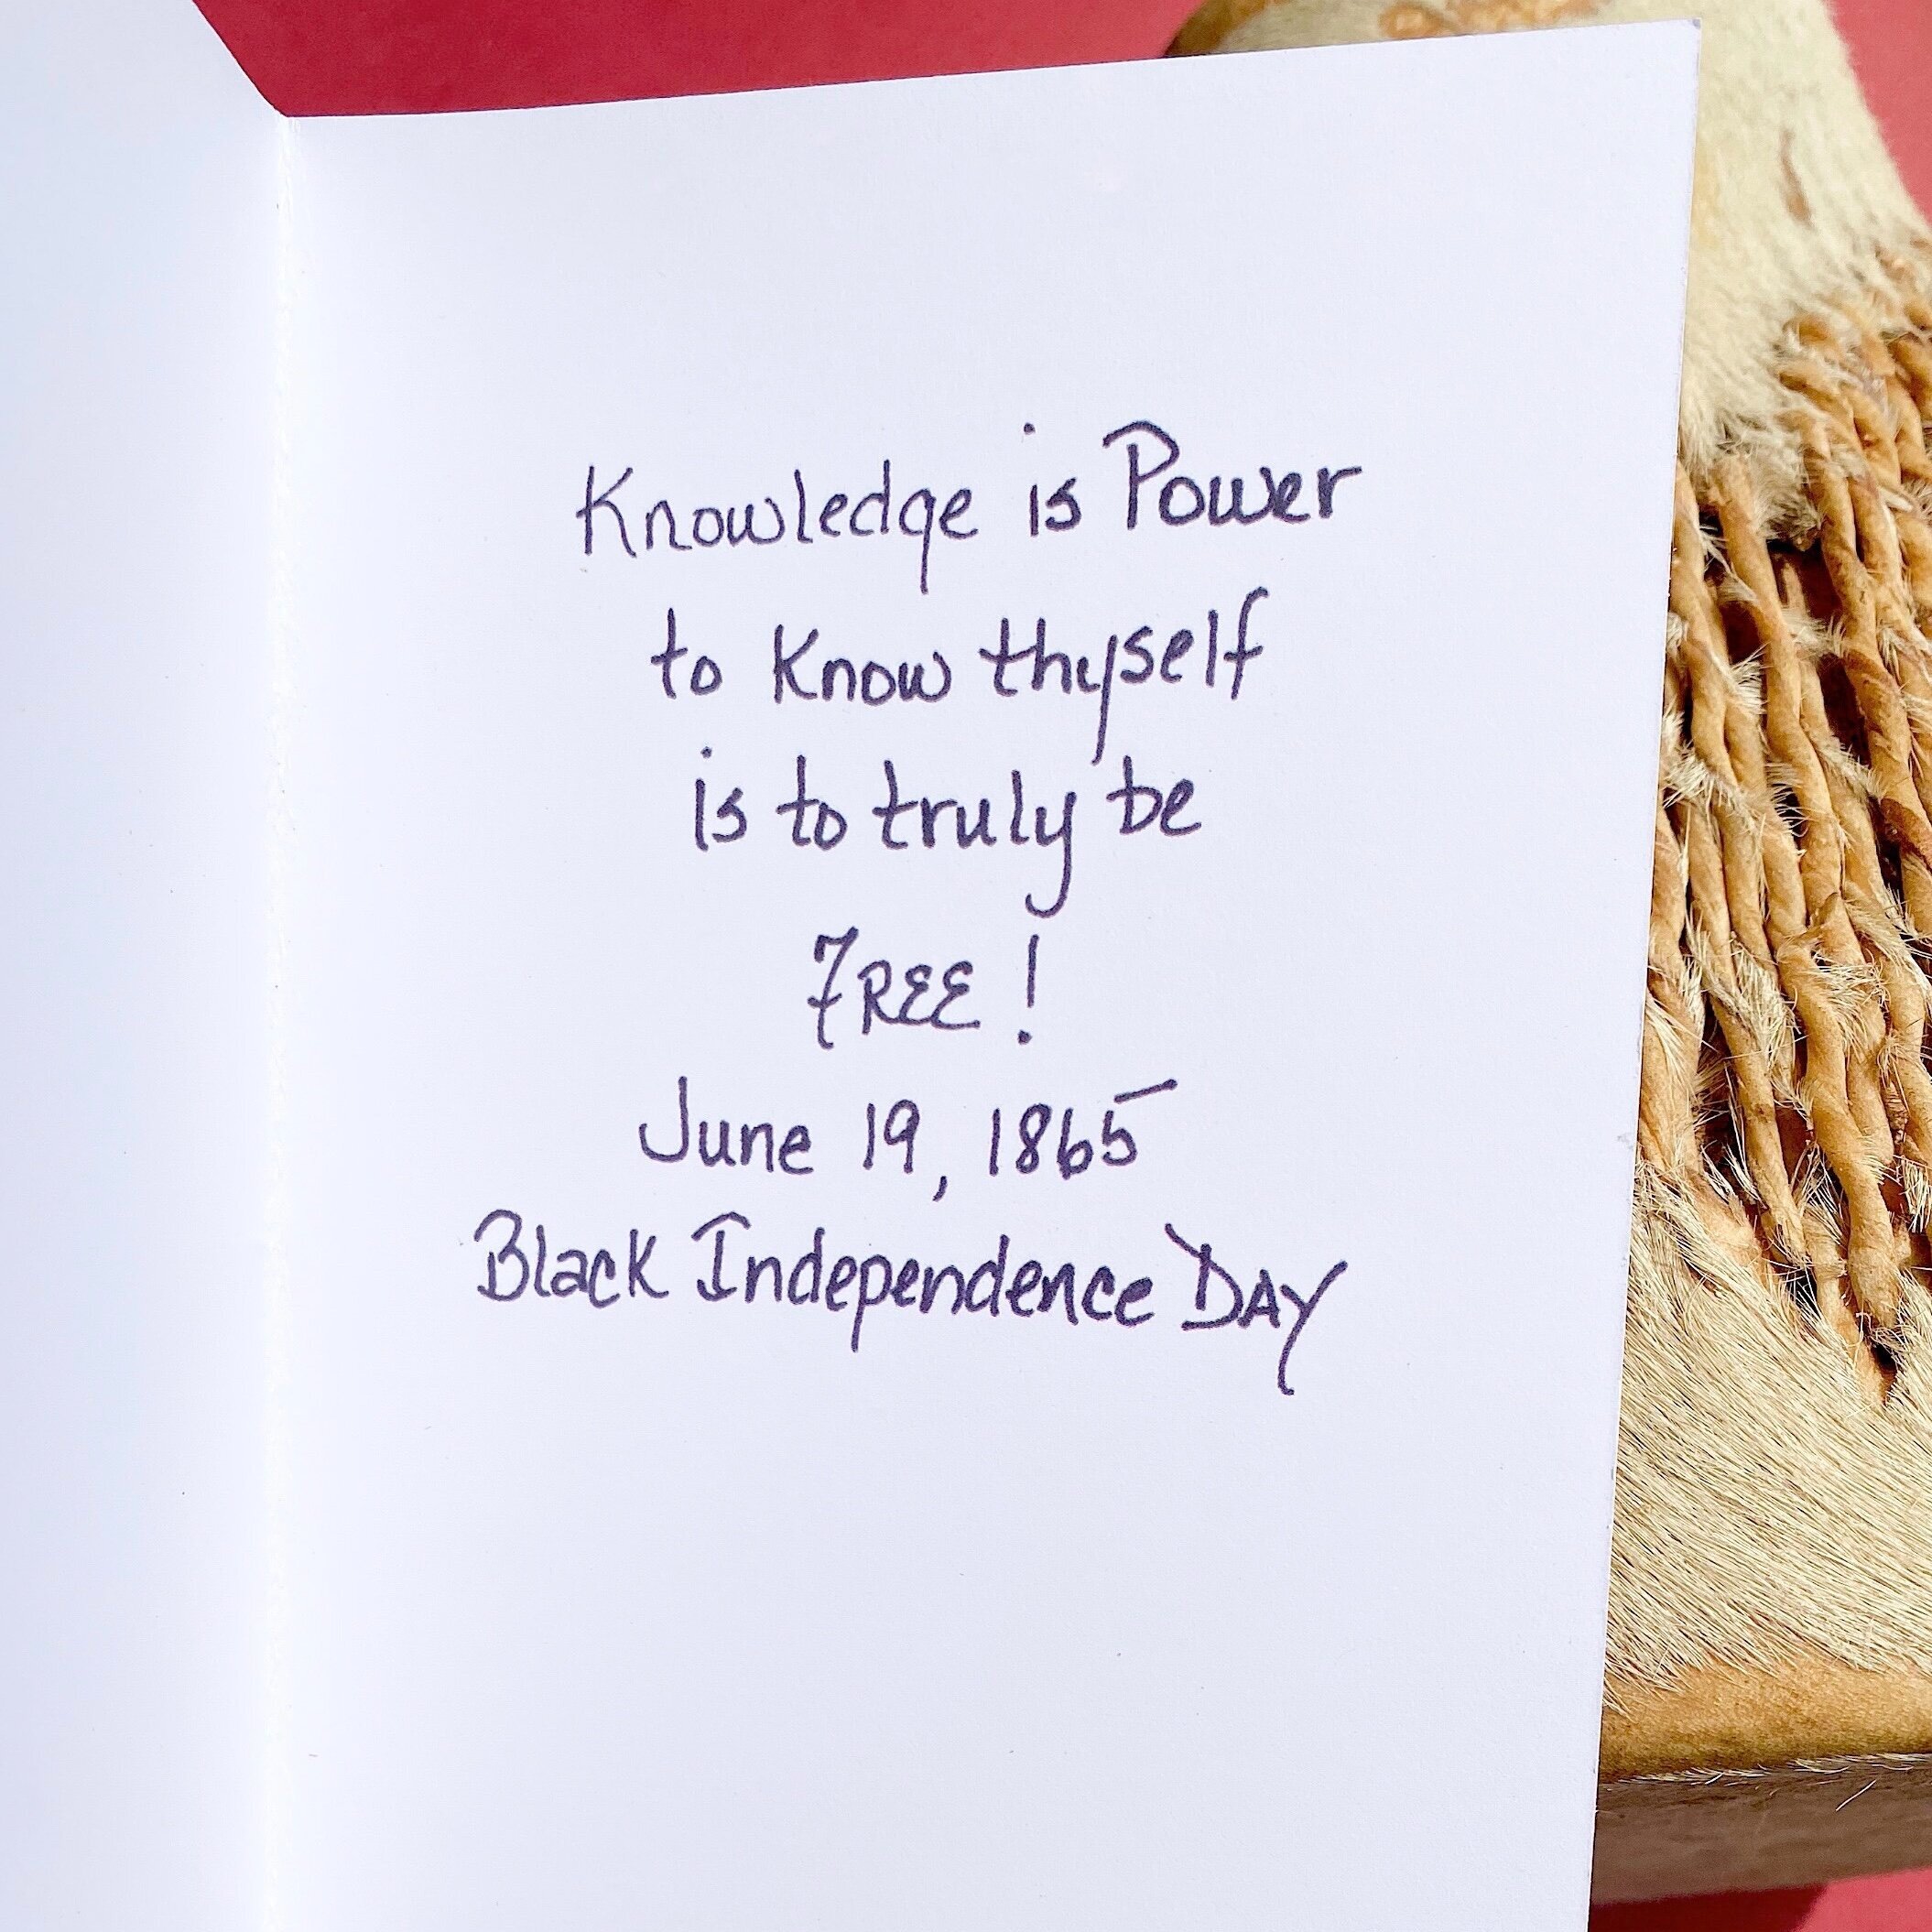 Knowledge is Power
to Know thyself
is to truly be
FREE !
June 19, 1865
Black Independence DAY